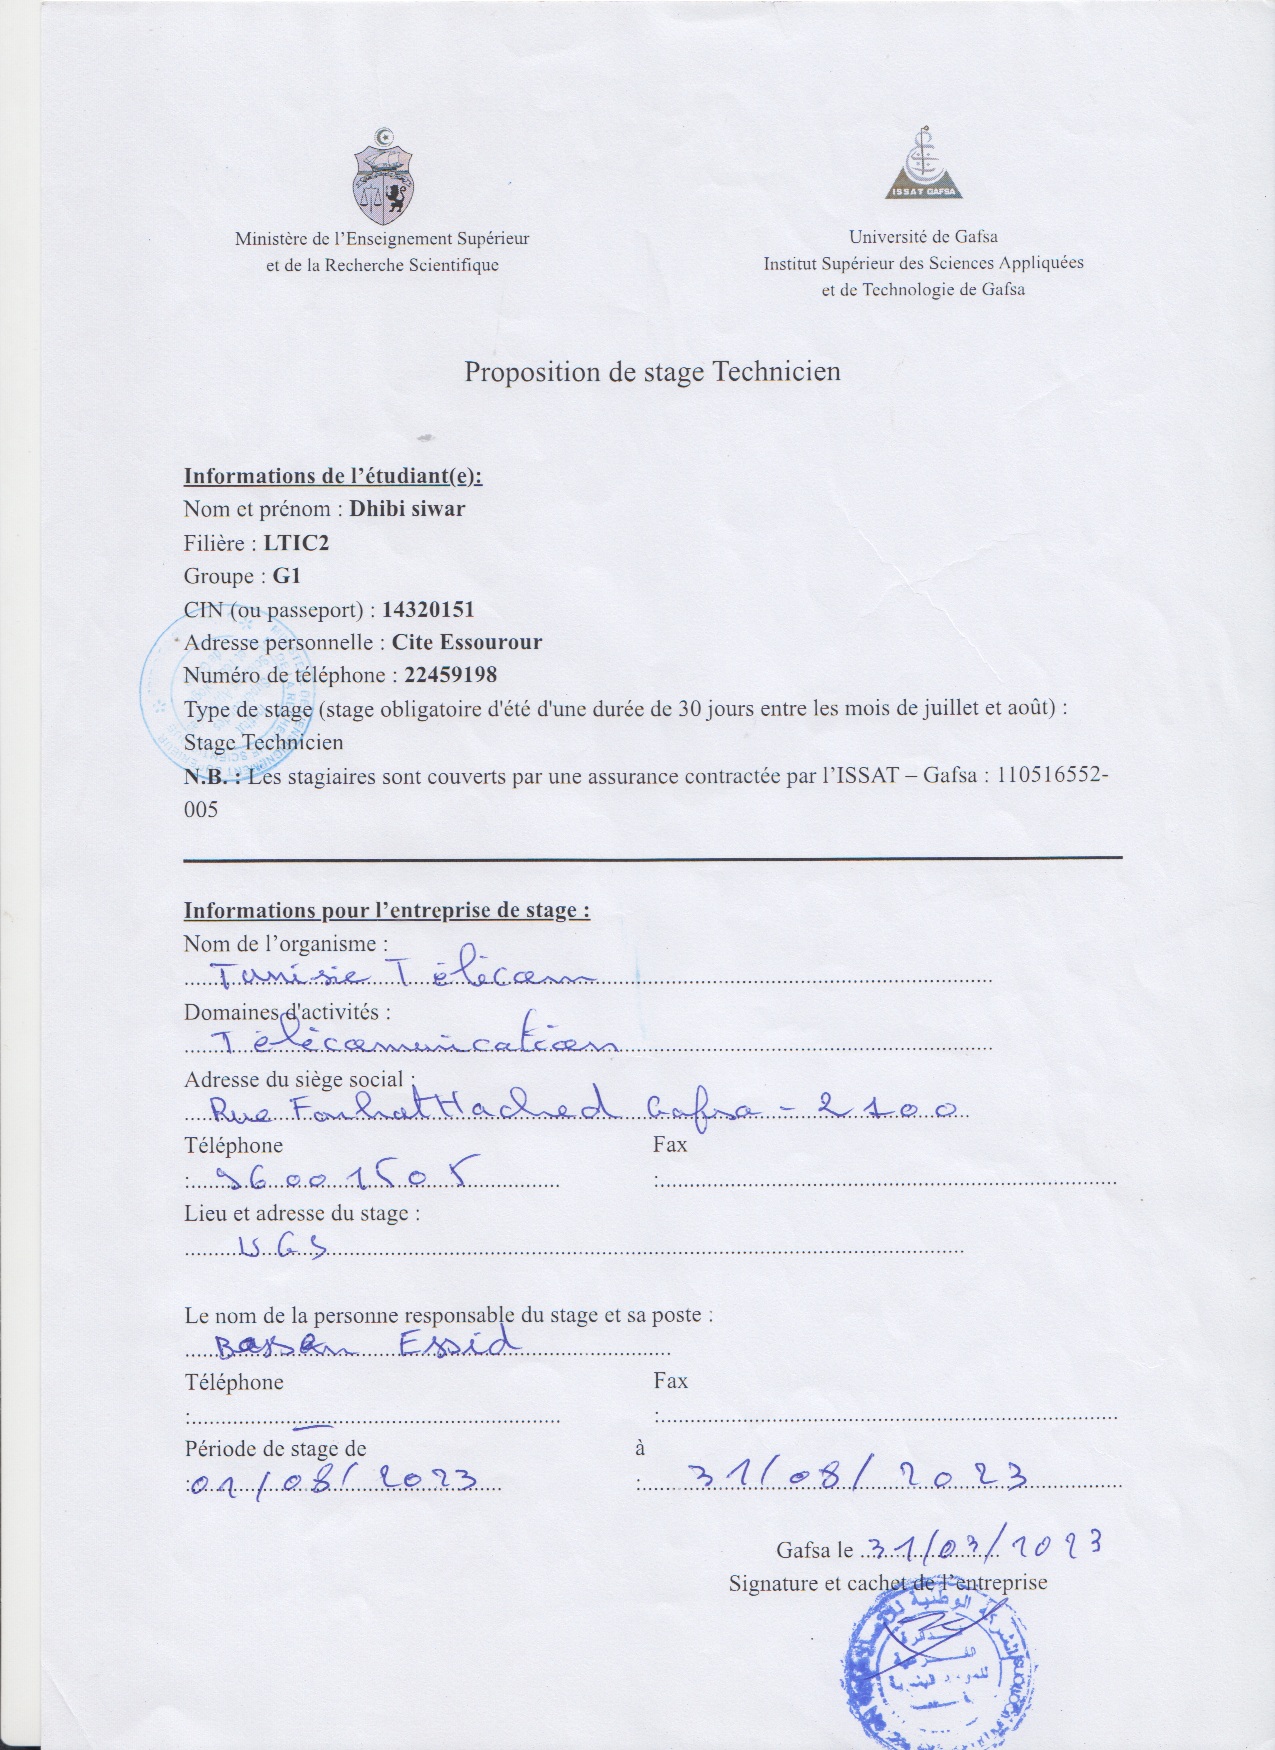 ISSAT GAFSA
Ministère de l'Enseignement Supérieur
et de la Recherche Scientifique
Université de Gafsa
Institut Supérieur des Sciences Appliquées
et de Technologie de Gafsa
Proposition de stage Technicien
Informations de l'étudiant(e):
Nom et prénom : Dhibi siwar
Filière : LTIC2
Groupe : G1
CIN (ou passeport) : 14320151
Adresse personnelle : Cite Essourour
Numéro de téléphone : 22459198
Type de stage (stage obligatoire d'été d'une durée de 30 jours entre les mois de juillet et août) :
Stage Technicien
N.B. : Les stagiaires sont couverts par une assurance contractée par l'ISSAT – Gafsa : 110516552-
005
Informations pour l'entreprise de stage :
Nom de l'organisme :
Tunisie Télécom
Domaines d'activités :
Télécomunication
Adresse du siège social :
Rue Farhat Hached Gafsa - 2100
Téléphone Fax
: 96001505 :
Lieu et adresse du stage :
UGS
Le nom de la personne responsable du stage et sa poste :
Essid
Téléphone Fax
: :
Période de stage de à
: 01/08/2023 : 31/08/2023
Gafsa le 31/03/2023
Signature et cachet de l'entreprise